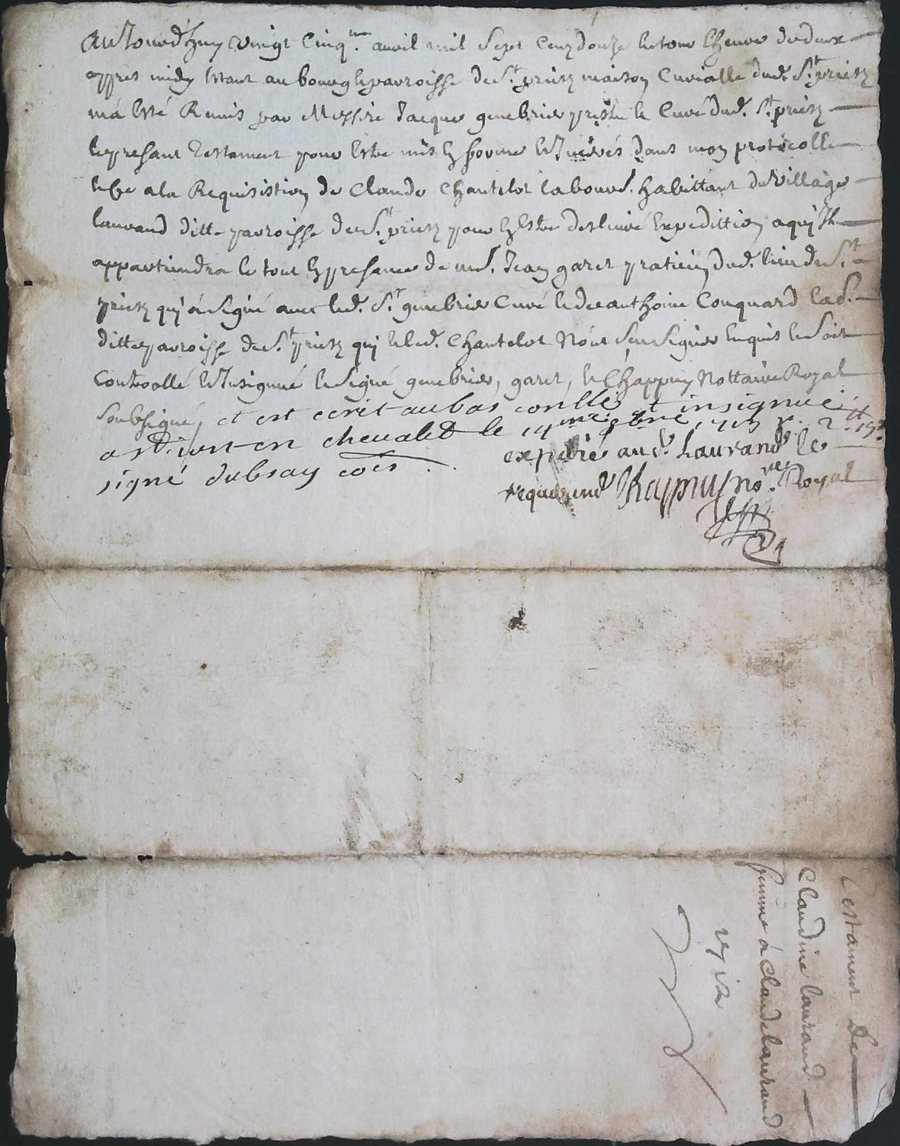 aujourd'huy vingt cinq.me avril mil sept centz douze heure de deux
appres midy estant au bourg & parroisse de St. priest maison curialle dud. St. priest
m'a esté Remis par Messire Jacque genebrier prestre & curé dud. St. priest
le present Testament pour estre mis en forme & inserés dans mon protocolle
& ce a la Requisistion de Claude Chantelot laboureur habittant du Village
Laurand ditte parroisse de St. priest pour en Estre deslivré Expedittion a quy Il
appartiendra le tout en presence de Jean garet praticien dud. lieu de St.
priest quy a signé avec led. Sr. genebrier Curé & de anthoine Conquard de lad.
ditte parroisse de St. priest quy & led. Chantelot N'ont sceu signer enquis & le soit
Controollé & Insignué & signé genebrier, garet, & Chappuy Nottaire Royal
soubsigné, et est ecrit au bas conllé et insignué
a St. just en chevalet le
signé dubsay
expedié aud. Laurand le
requerend Chappuy no.re Royal
Testament De
Claudine laurand
femme à Claude laurand
1712